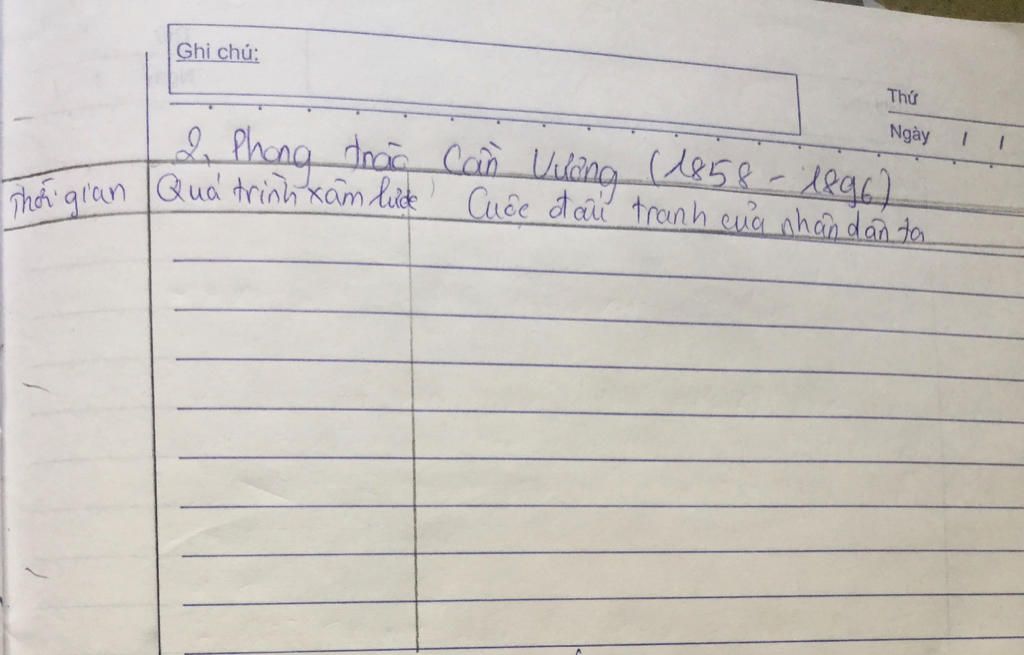 Ghi chú:
Thứ
Ngày / /
2. Phong trào Cần Vương (1858 - 1896)
Thời gian Quá trình xâm lược Cuộc đấu tranh của nhân dân ta